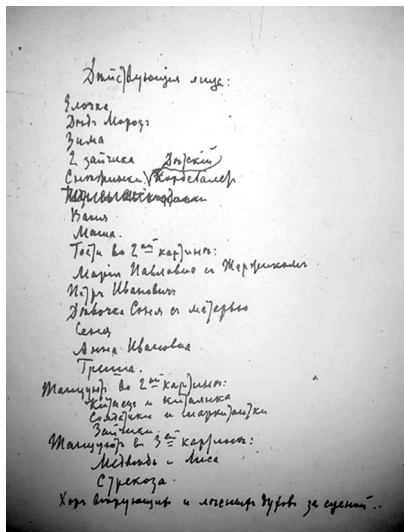 Дѣйствующія лица:
Елочка
Дѣдъ Морозъ
Зима
2 зайчика Дѣтскій
Снѣжинки Кордебалет
Ваня
Маша.
Гости во 2ой картинѣ:
Марія Павловна съ
Петръ Ивановичъ
Дѣвочка Соня съ матерью
Сеня
Анна Ивановна
Гриша.
Танцуютъ во 2ой картинѣ:
Китаецъ и китаянка
Солдатики и маркитантки
Зайчики.
Танцуютъ въ 3ей картинѣ:
Медвѣдь и Лиса
Стрекоза.
Хоръ и за сценой..